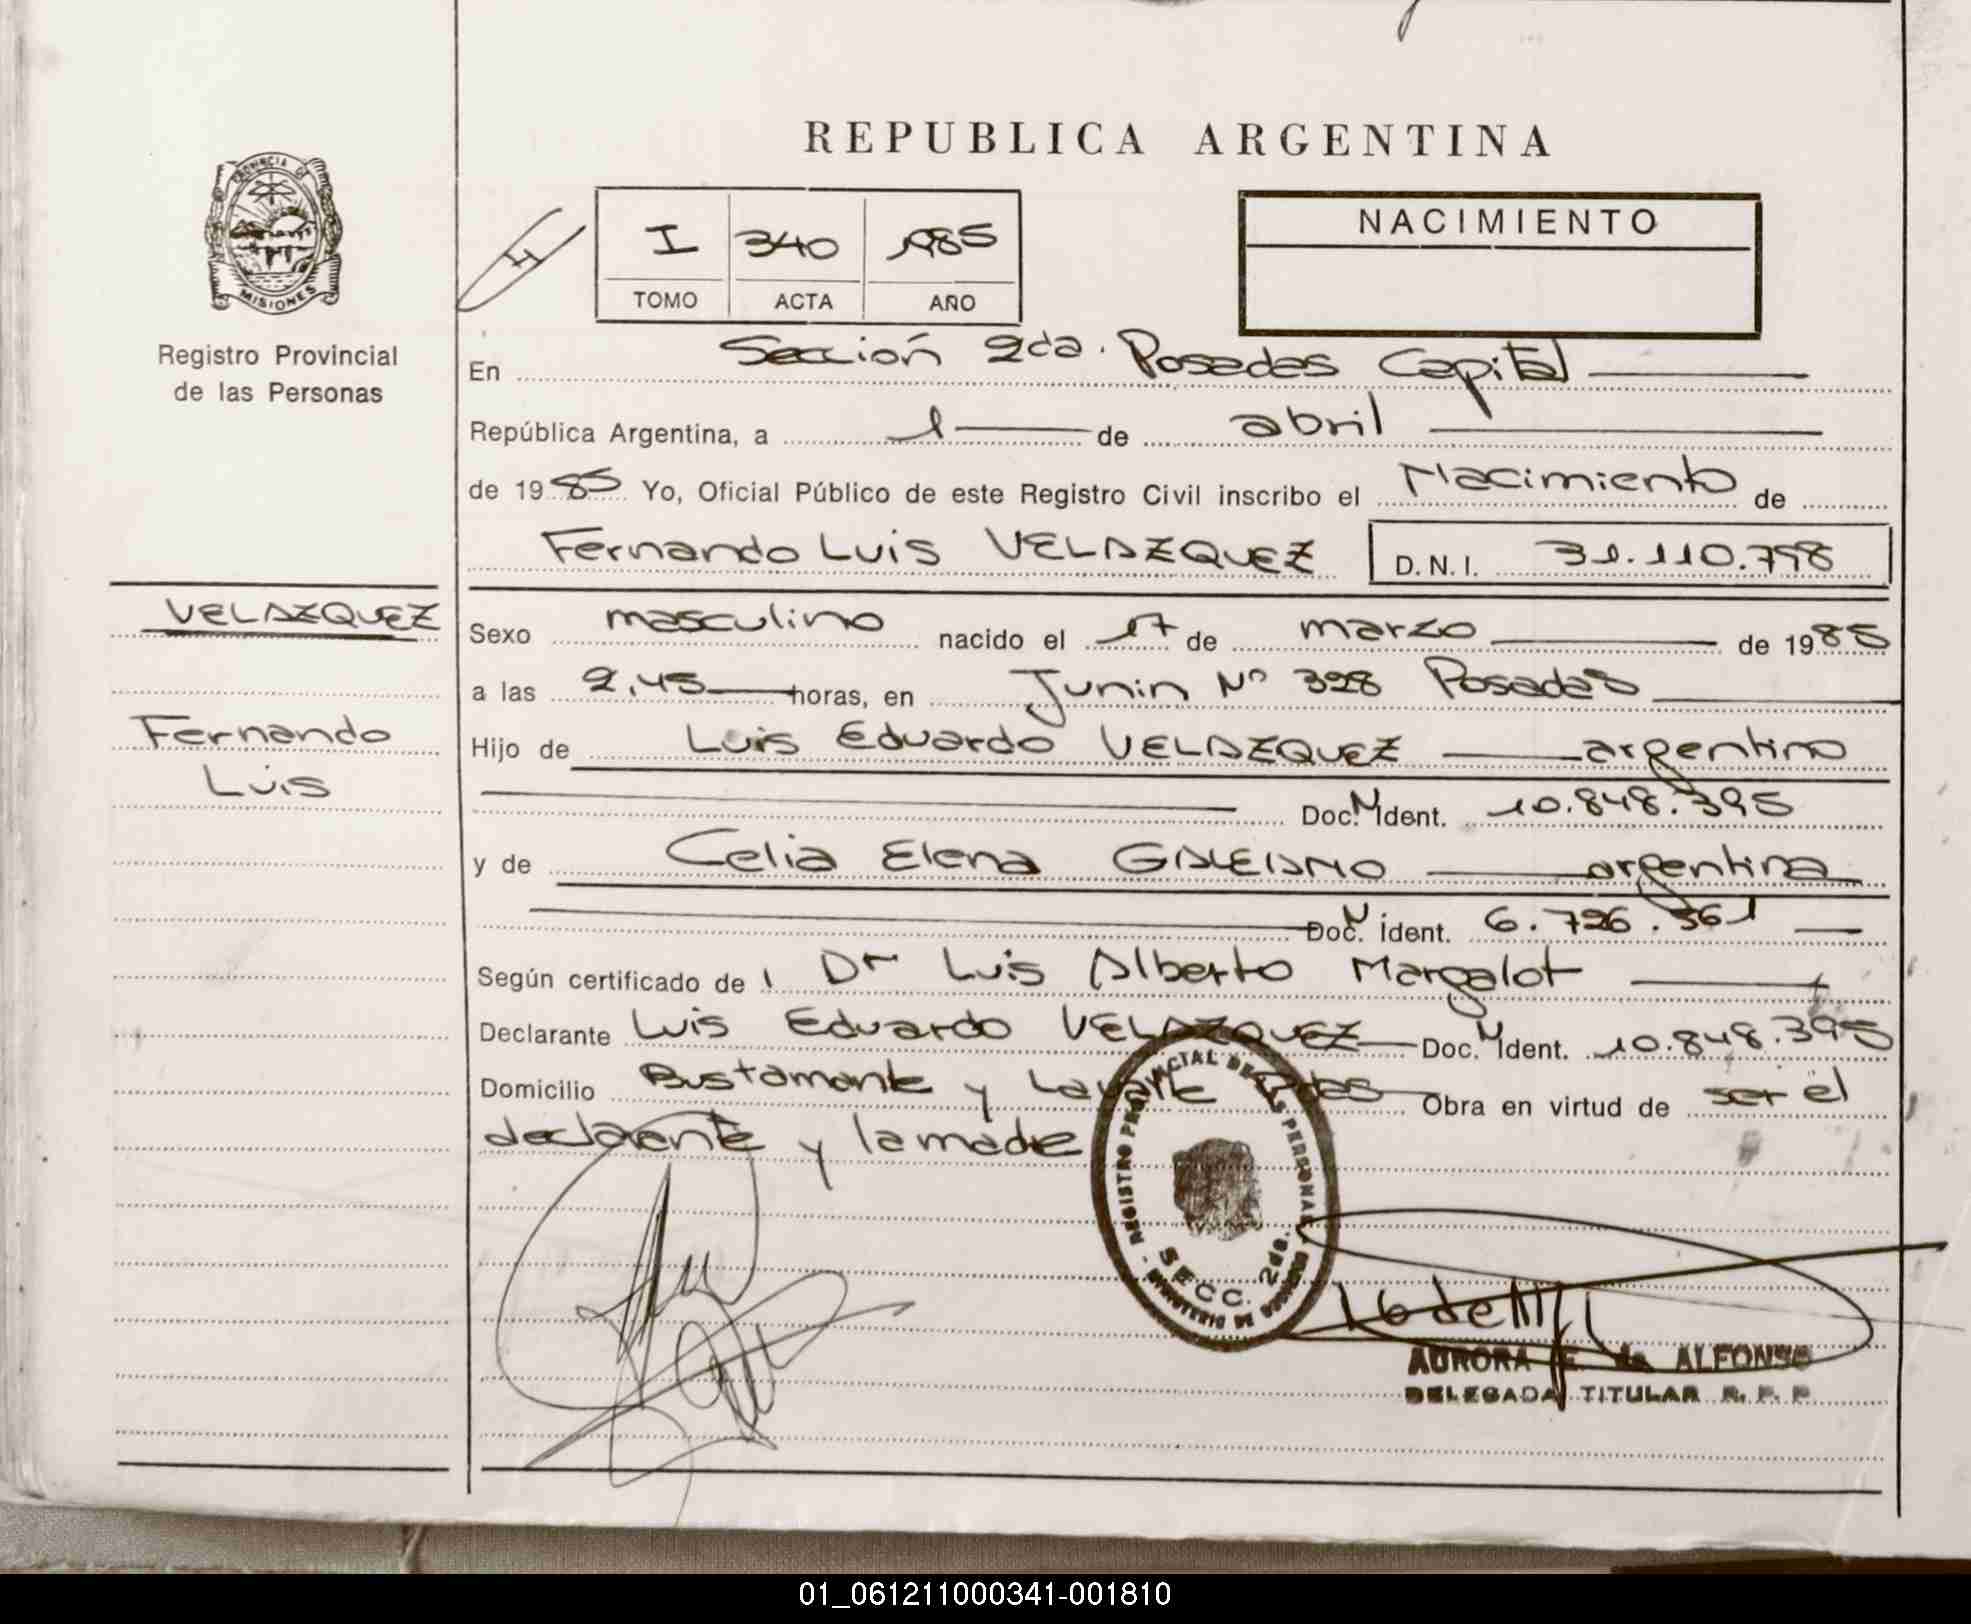 REPUBLICA ARGENTINA
PROVINCIA DE
MISIONES
Registro Provincial
de las Personas
I 340 1985
TOMO ACTA AÑO
NACIMIENTO
En Sección 2da. Posadas Capital
República Argentina, a 1 de abril
de 1985 Yo, Oficial Público de este Registro Civil inscribo el Nacimiento de
Fernando Luis VELAZQUEZ D.N.I. 31.110.798
VELAZQUEZ
Fernando
Luis
Sexo masculino nacido el 17 de marzo de 1985
a las 2,45 horas, en Junin Nº 328 Posadas
Hijo de Luis Eduardo VELAZQUEZ argentino
Doc. N Ident. 10.848.395
y de Celia Elena GALEANO argentina
Doc. N Ident. 6.726.361
Según certificado de Dr Luis Alberto Margalot
Declarante Luis Eduardo VELAZQUEZ Doc. N Ident. 10.848.395
Domicilio Bustamante y Lavalle Pdas Obra en virtud de ser el
declarante y la madre
REGISTRO PROVINCIAL DE LAS PERSONAS
SECC. 2da.
MINISTERIO DE GOBIERNO
AURORA E. de ALFONSO
DELEGADA TITULAR R. P. P.
01_061211000341-001810